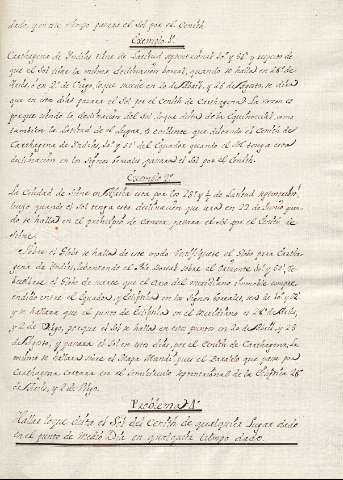 dado, y en ese tiempo pasara el Sol por el Cenith.
Exemplo 1º
Carthagena de Yndias tiene de Latitud septentrional 10º y 26' y respecto de
que el Sol tiene la misma declinacion boreal, quando se halla en 28º de
Aries, o en 2º de Virgo, lo que sucede en 20 de Abril, y 25 de Agosto, se dira
que en estos dias pasara el Sol por el Cenith de Carthagena. La razon es
porque siendo la declinacion del Sol, lo que dista de la Equinoccial, como
tambien la Latitud de el Lugar, es evidente que distando el Cenith de
Carthagena de Yndias, 10º y 26' del Equador quando el Sol tenga esta
declinacion en los Signos boreales pasara el Sol por el Cenith.
Exemplo 2º
La Ciudad de Siene en está por los 23º y ½ de Latitud septentrional,
luego quando el Sol tenga esta declinacion que sera en 22 de Junio quan-
do se halla en el principio de Cancer, pasara el Sol por el Cenith de
Siene.
Sobre el Globo se halla de este modo. el Globo para Cartha-
gena de Yndias, lebantando el Polo boreal sobre el Orizonte 10º y 26',
el Globo de suerte que el arco del meridiano immoble compre-
endido entre el Equador, y Ecliptica en los Signos boreales, sea de 10º y 26'
y se hallara que el punto de Ecliptica en el Meridiano es 28º de Aries,
y 2 de Virgo, porque el Sol se halla en estos puntos en 20 de Abril, y 25
de Agosto, y pasara el Sol en estos dias, por el Cenith de Carthagena. Lo
mismo se hallara sobre el Mapa Mundi, pues el Paralelo que pase por
Carthagena cortara en el Semicirculo septentrional de la Ecliptica 28º
de Aries, y 2 de Virgo.
Problema 4º
Hallar lo que dista el Sol del Cenith de qualquier Lugar dado
en el punto de Medio Dia en qualquier tiempo dado.